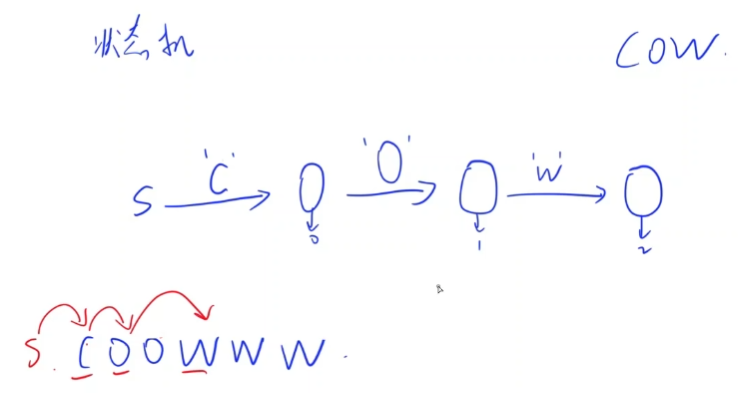 状态机 COW.
S 'C' 'O' 'W'
0 1 2
S. COOWWW.